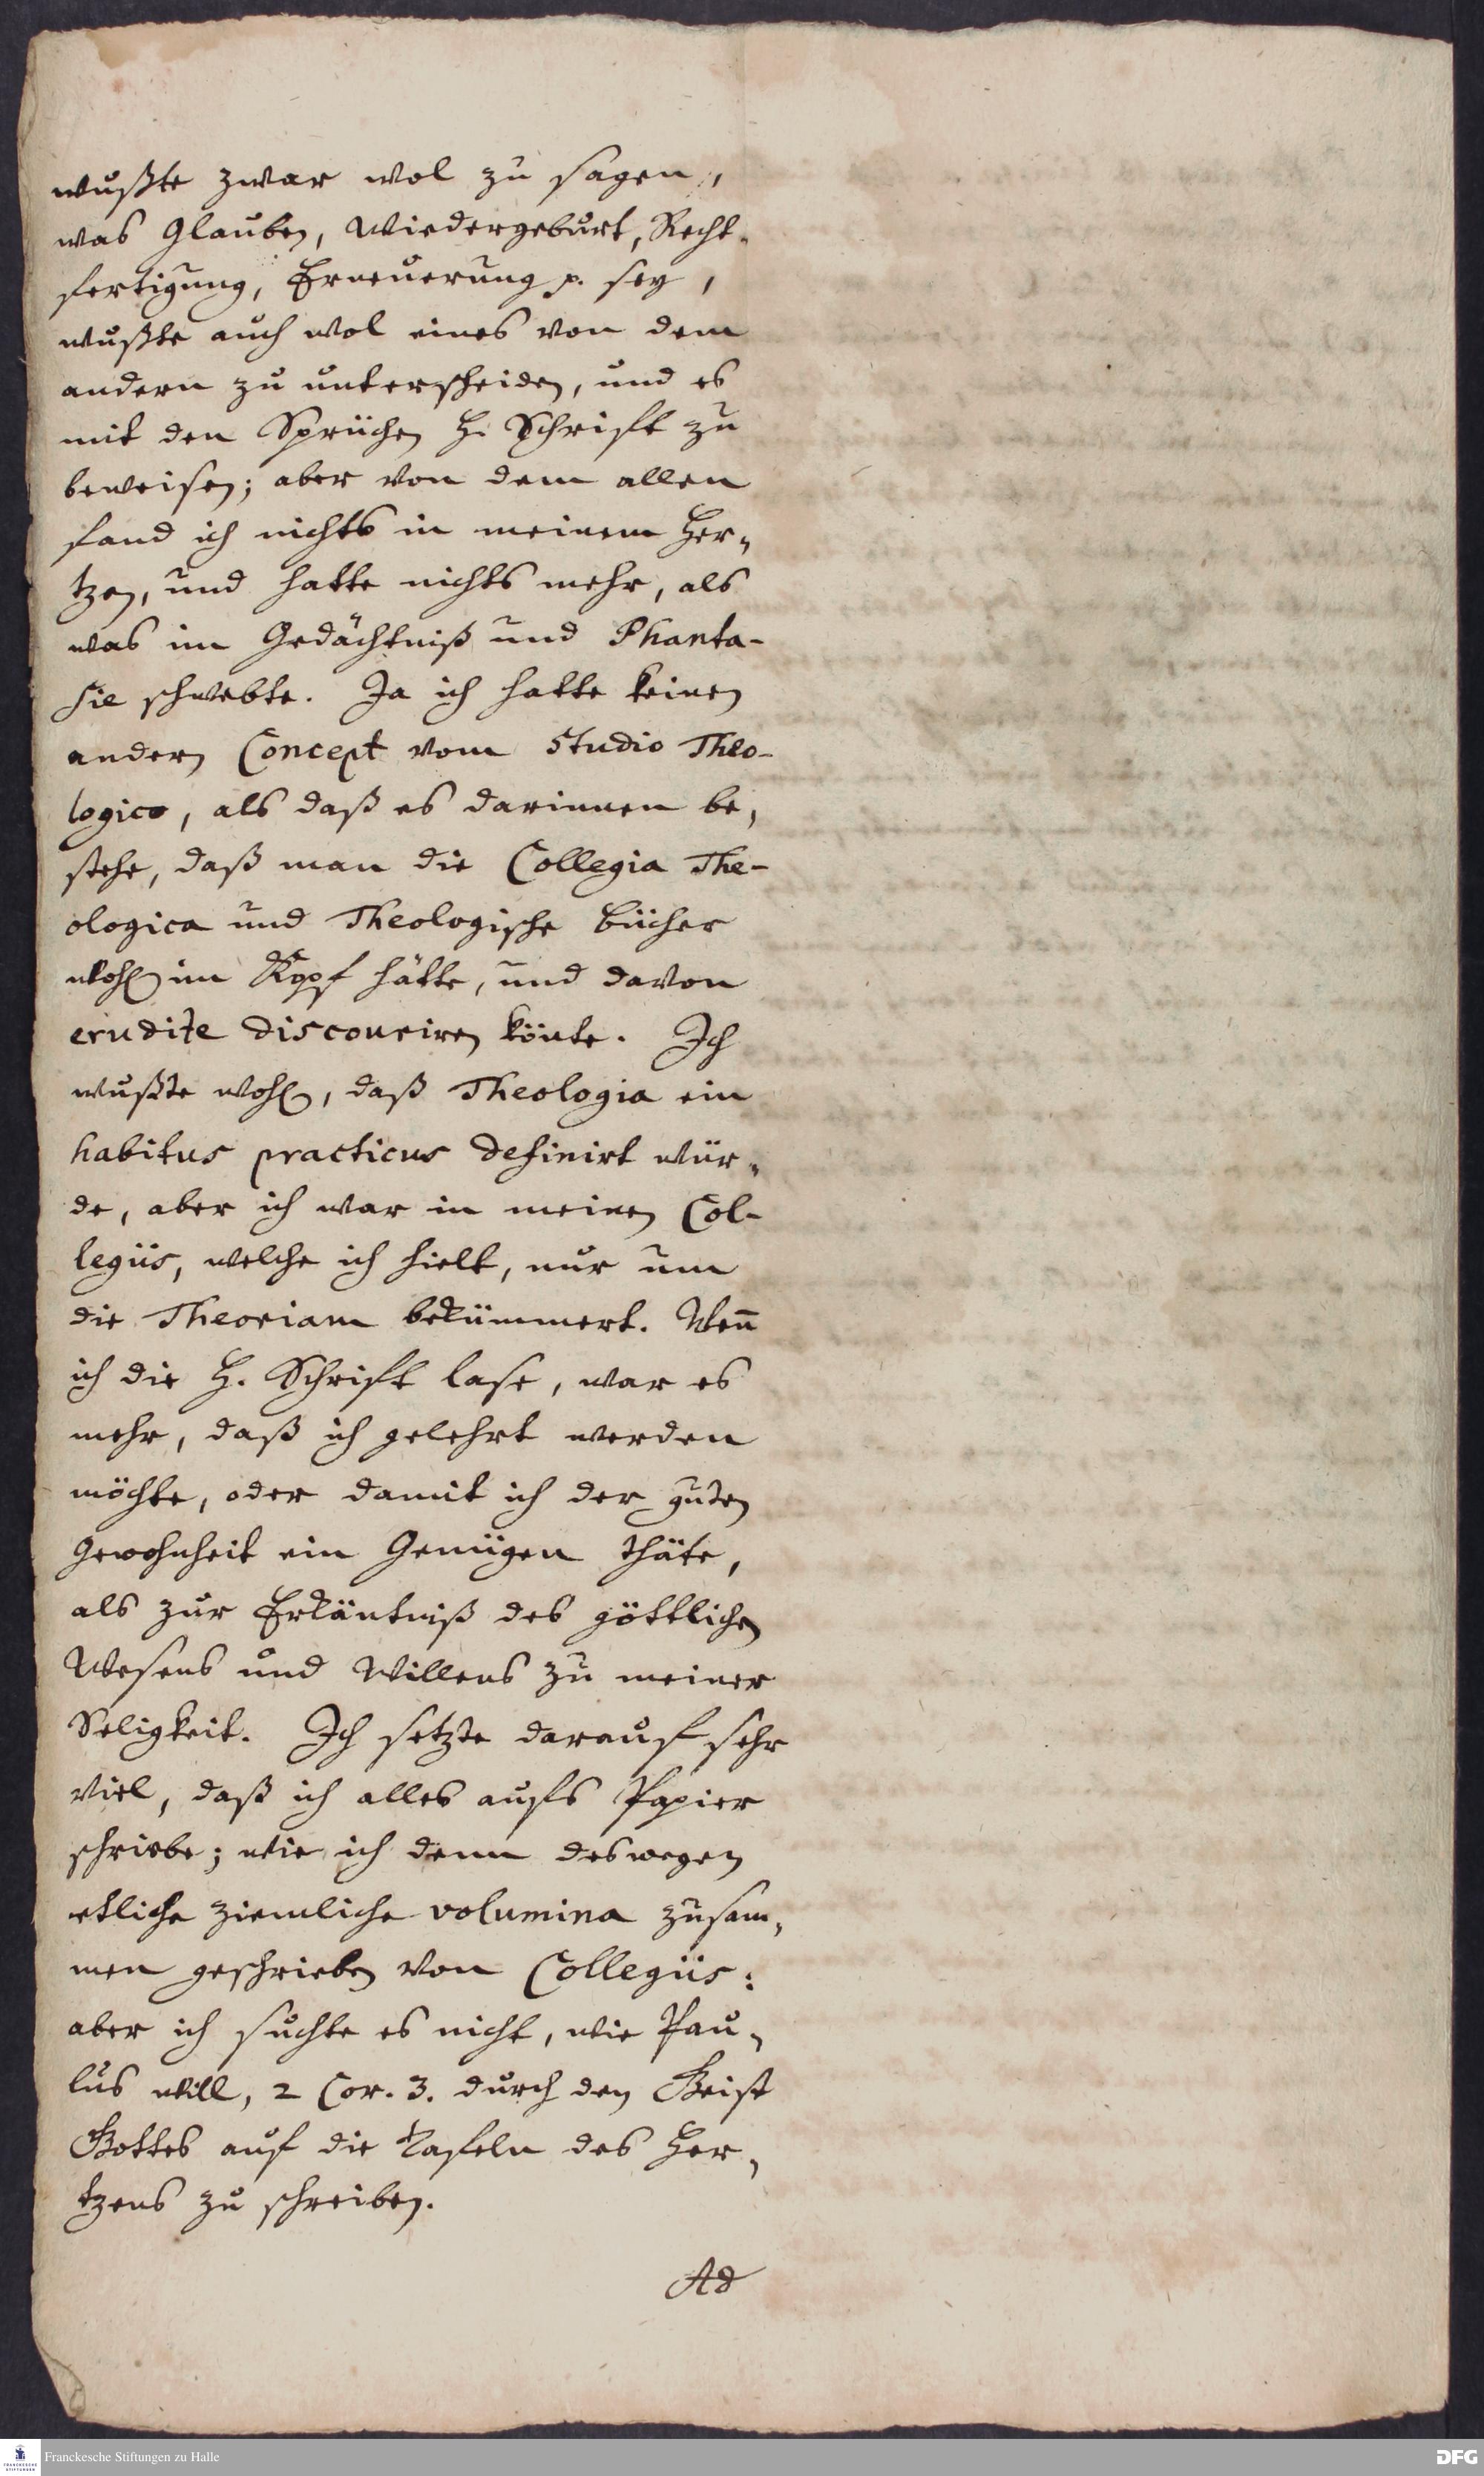 wußte zwar wol zu sagen,
was Glauben, Wiedergeburt, Recht-
fertigung, Erneuerung p. sey,
wußte auch wol eines von dem
andern zu unterscheiden, und es
mit den Sprüchen H. Schrifft zu
beweisen; aber von dem allen
fand ich nichts in meinem Her-
tzen, und hatte nichts mehr, als
was im Gedächtniß und Phanta-
sie schwebte. Ja ich hatte keinen
andern Concept vom Studio Theo-
logico, als daß es darinnen be-
stehe, daß man die Collegia The-
ologica und Theologische Bücher
wohl im Kopf hätte, und davon
erudite discouriren könte. Ich
wußte wohl, daß Theologia ein
habitus practicus definirt wür-
de, aber ich war in meinen Col-
legiis, welche ich hielt, nur um
die Theoriam bekümmert. Wen̄
ich die H. Schrifft lase, war es
mehr, daß ich gelehrt werden
möchte, oder damit ich der guten
Gewohnheit ein Genügen thäte,
als zur Erkäntniß des göttlichen
Wesens und Willens zu meiner
Seligkeit. Ich setzte darauf sehr
viel, daß ich alles aufs Papier
schriebe; wie ich denn deswegen
etliche ziemliche volumina zusam-
men geschrieben von Collegiis:
aber ich suchte es nicht, wie Pau-
lus will, 2 Cor. 3. durch den Geist
Gottes auf die Tafeln des Her-
tzens zu schreiben.
Ad
Franckesche Stiftungen zu Halle
DFG
FRANCKESCHE
STIFTUNGEN